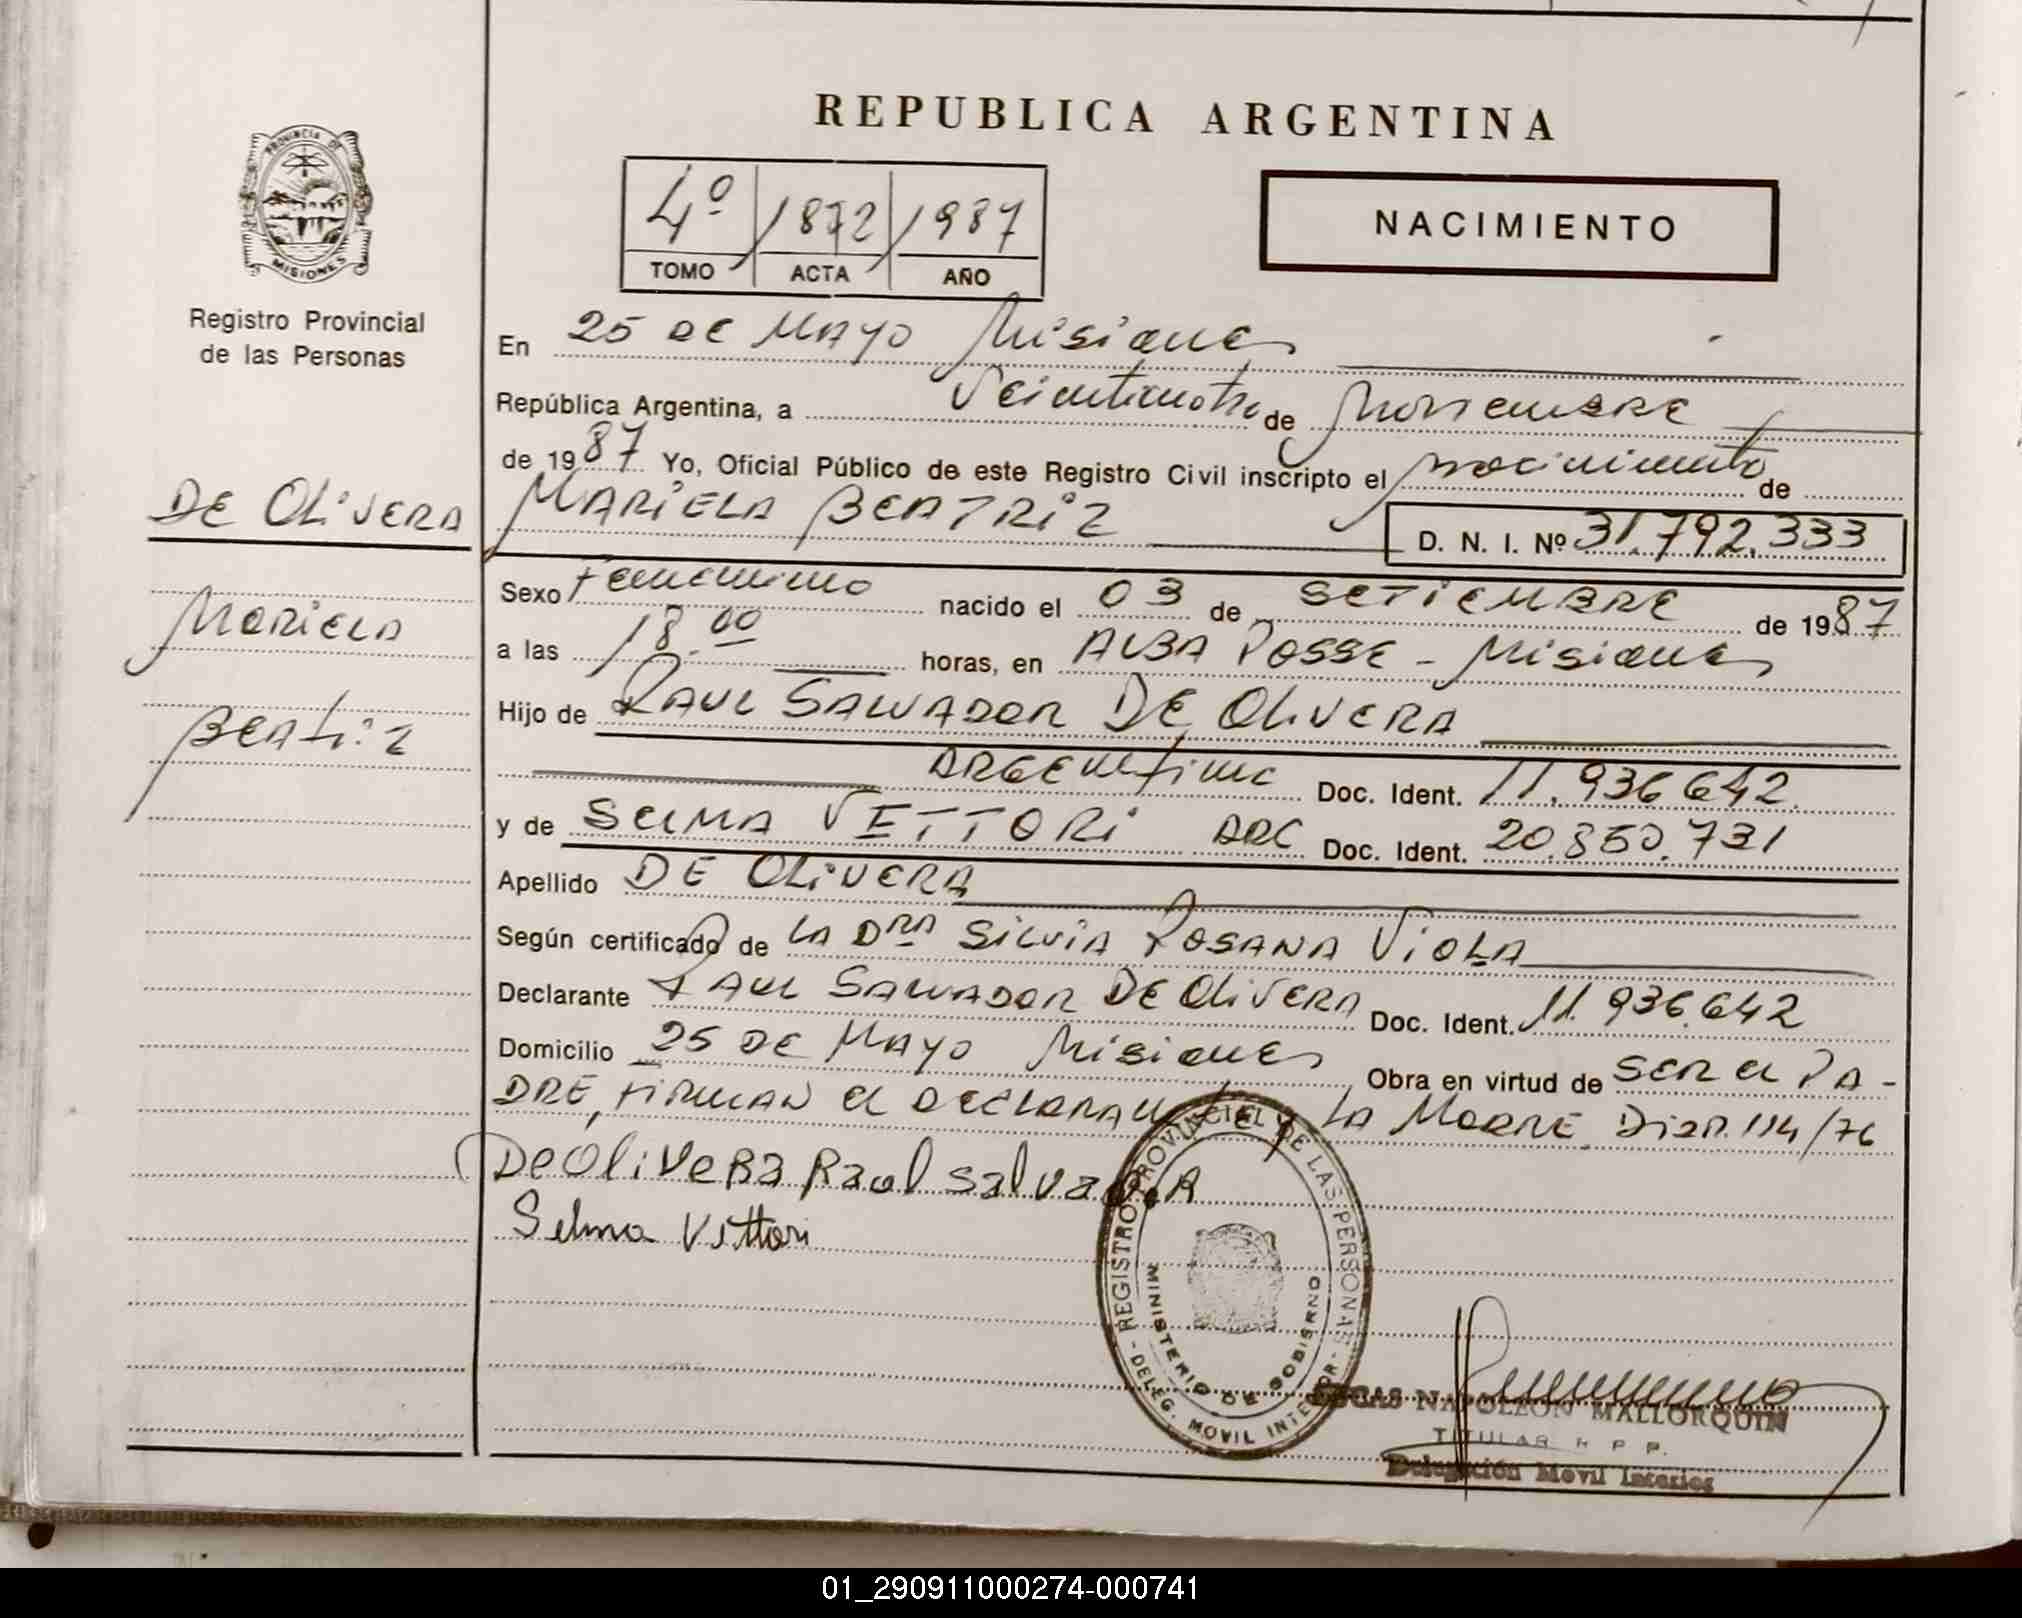 REPUBLICA ARGENTINA
PROVINCIA DE MISIONES
Registro Provincial
de las Personas
4º / 1872 / 1987
TOMO ACTA AÑO
NACIMIENTO
En 25 DE MAYO Misiones
República Argentina, a Veinticuatro de Noviembre
de 1987 Yo, Oficial Público de este Registro Civil inscripto el nacimiento de
DE OLIVERA
MARIELA BEATRIZ
D. N. I. Nº 31.792.333
Mariela
Beatriz
Sexo Femenino nacido el 03 de SETIEMBRE de 1987
a las 18.00 horas, en ALBA POSSE - Misiones
Hijo de RAUL SALVADOR DE OLIVERA
ARGENtino Doc. Ident. 11.936.642
y de SELMA VETTORI ARG Doc. Ident. 20.850.731
Apellido DE OLIVERA
Según certificado de LA DRA SILVIA ROSANA VIOLA
Declarante RAUL SALVADOR DE OLIVERA Doc. Ident. 11.936.642
Domicilio 25 DE MAYO Misiones Obra en virtud de SER el PA-
DRE, FIRMAN el DECLARANte y LA MADRE. Disp. 114/76
DeOliveRa Raul SalvadoR
Selma Vettori
REGISTRO PROVINCIAL DE LAS PERSONAS
MINISTERIO DE GOBIERNO
- DELEG. MOVIL INTERIOR -
NAPOLEON MALLORQUIN
TITULAR R P P.
Delegación Movil Interior
01_290911000274-000741